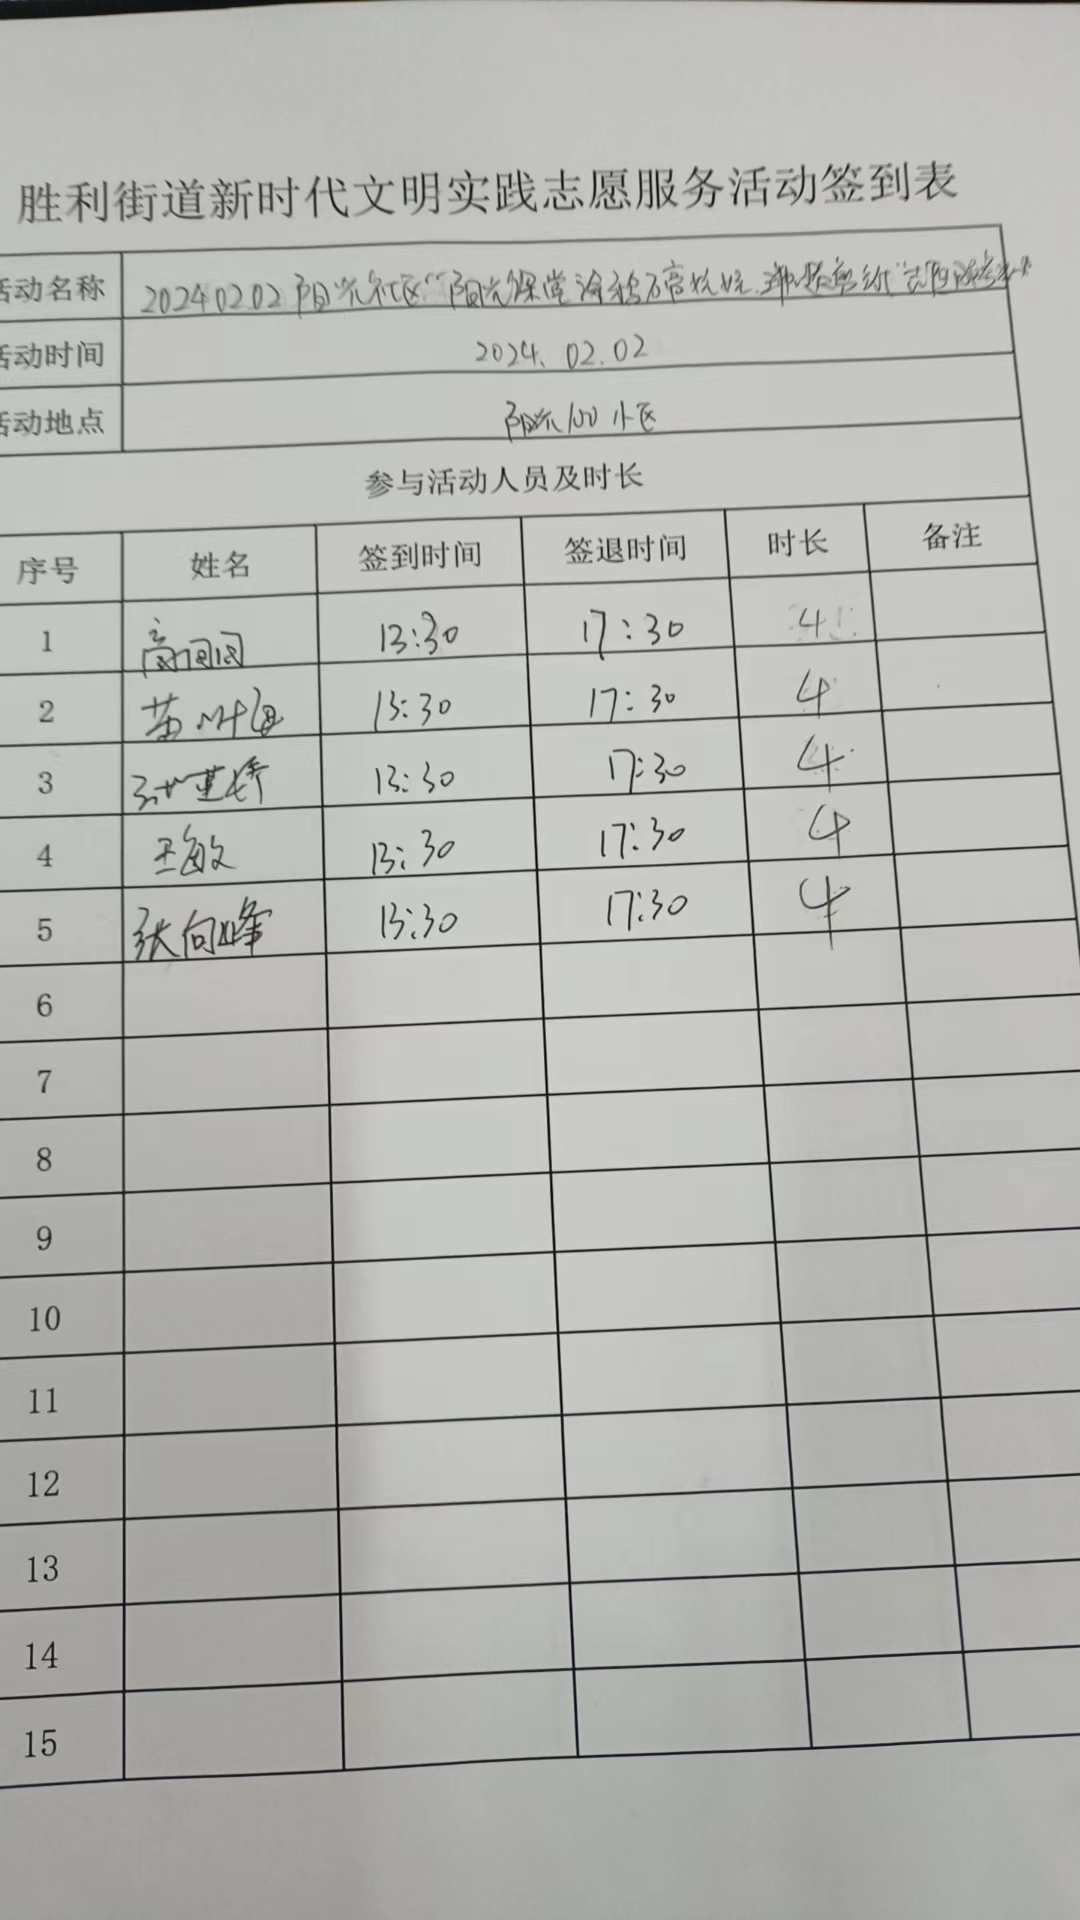 胜利街道新时代文明实践志愿服务活动签到表
活动名称 20240202阳光社区“阳光课堂涂鸦石膏娃娃
活动时间 2024.02.02
活动地点 阳光100小区
参与活动人员及时长
序号 姓名 签到时间 签退时间 时长 备注
1 高园园 13:30 17:30 4
2 苗 13:30 17:30 4
3 13:30 17:30 4
4 王敏 13:30 17:30 4
5 张向峰 13:30 17:30 4
6
7
8
9
10
11
12
13
14
15